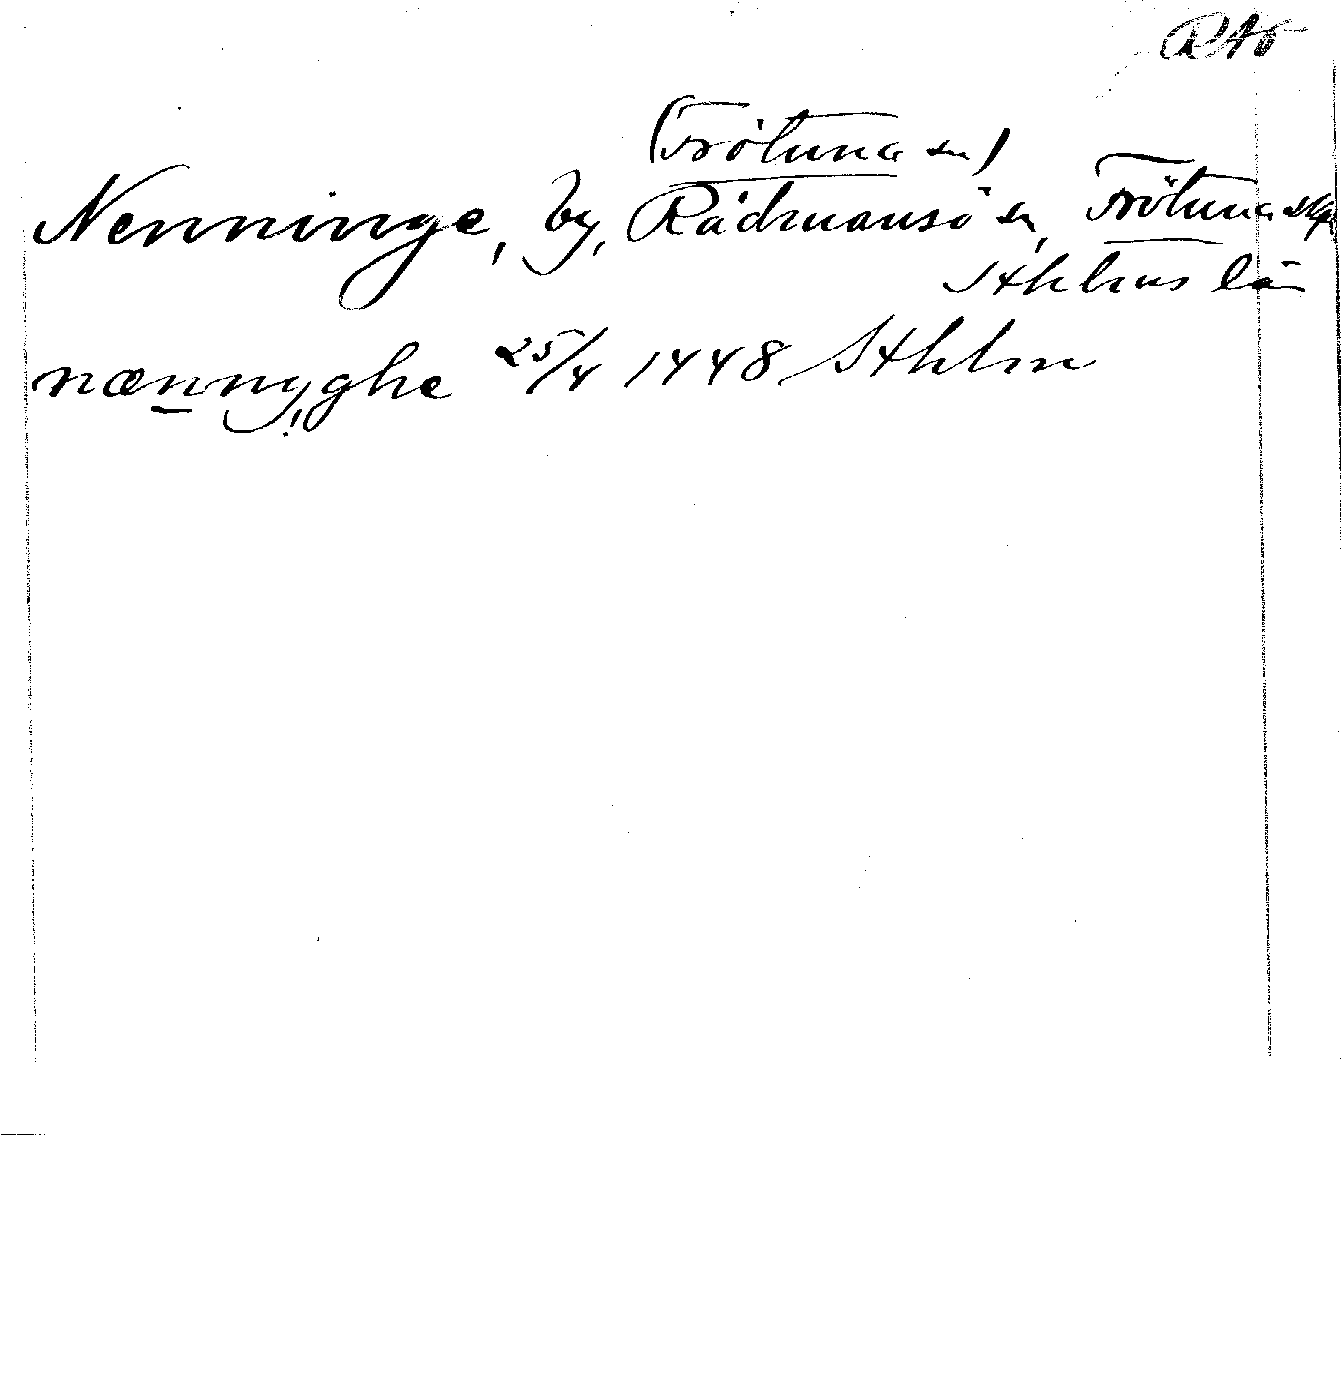 RAö
(Frötuna sn)
Nenninge, by, Rådmansö sn, Frötuna skg
Sthlms län
nænnyghe 25/4 1448 Sthlm